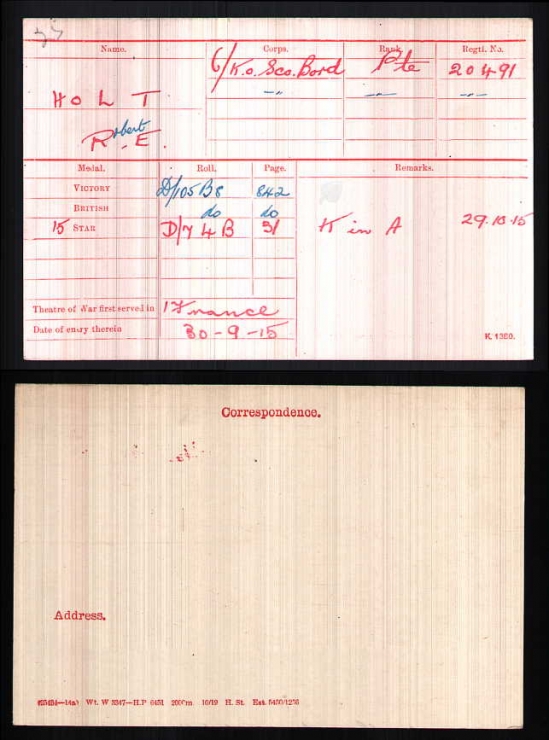 Name. Corps. Rank. Regtl. No.
6/K.o. Sco. Bord Pte 20491
HOLT -"- -"- -"-
Robert E.
Medal. Roll. Page. Remarks.
VICTORY D/105B8 842
BRITISH do do
15 STAR D/74B 51 K in A 29.10.15
Theatre of War first served in 1 France
Date of entry therein 30-9-15
K. 1380.
Correspondence.
Address.
Wt. W 5347—H.P 6451 10/19 H. St.